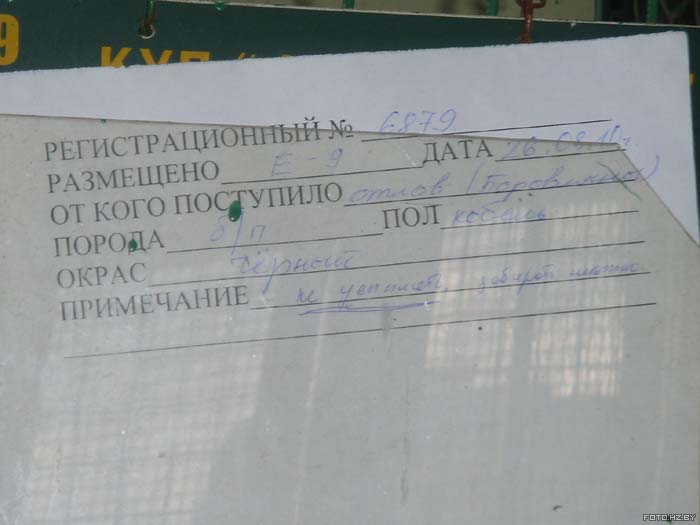 9 КУП "
РЕГИСТРАЦИОННЫЙ № 6879
РАЗМЕЩЕНО Е-9 ДАТА 26.08.10г.
ОТ КОГО ПОСТУПИЛО отлов (Боровляны)
ПОРОДА б/п ПОЛ кобель
ОКРАС чёрный
ПРИМЕЧАНИЕ не усыплять,
FOTO.HZ.BY